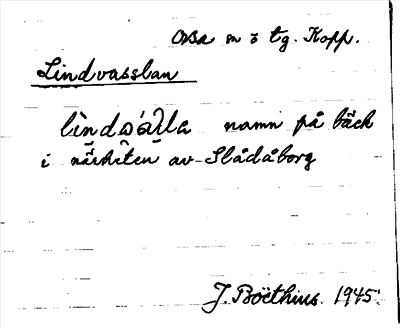 Orsa sn o tg. Kopp.
Lindvasslan
namn på bäck
i närheten av Slådåborg
J. Boëthius. 1945.